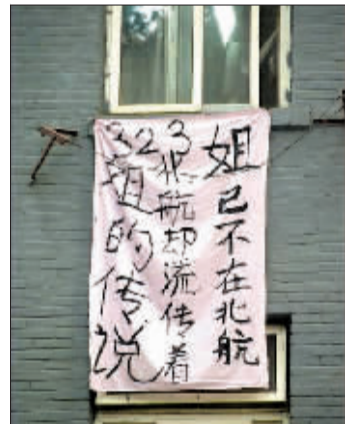 姐已不在北航
北航却流传着
323姐的传说